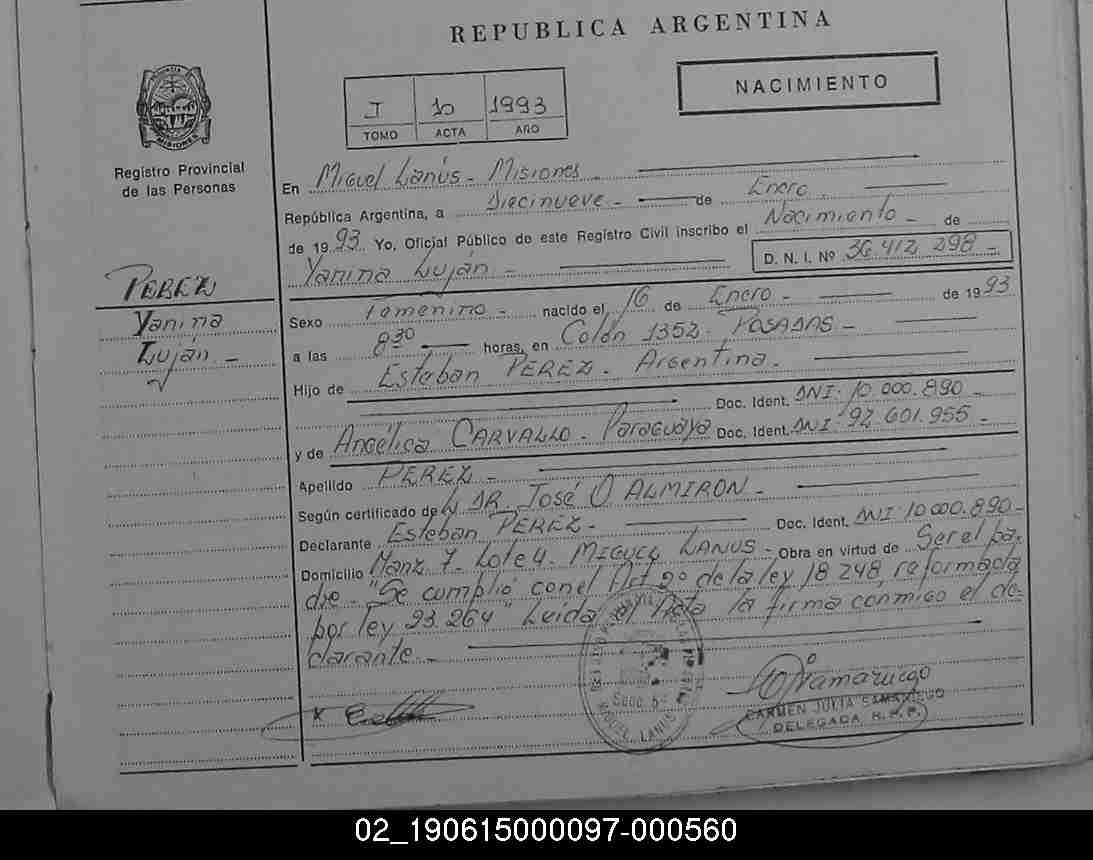 REPUBLICA ARGENTINA
PROVINCIA DE
MISIONES
Registro Provincial
de las Personas
I 10 1993
TOMO ACTA AÑO
NACIMIENTO
En Miguel Lanús - Misiones -
República Argentina, a Diecinueve - de Enero
de 1993 Yo, Oficial Público de este Registro Civil inscribo el Nacimiento - de
Yanina Luján - D. N. I. Nº 36.412.298 -
PEREZ
Yanina
Luján -
Sexo Femenino - nacido el 16 de Enero - de 1993
a las 8 30 horas, en Colón 1352 - POSADAS -
Hijo de Esteban PEREZ - Argentina -
Doc. Ident. DNI. 10.000.890 -
y de Angélica CARVALLO - Paraguaya Doc. Ident. DNI. 92.601.955 -
Apellido PEREZ -
Según certificado de DR. José O ALMIRON -
Declarante Esteban PEREZ - Doc. Ident. DNI 10.000.890 -
Domicilio Manz 7 - Lote 4 - MIGUEL LANUS - Obra en virtud de Ser el pa-
dre - "Se cumplió con el Art 2º de la ley 18.248, reformada
por ley 23.264" Leída el Acta la firma conmigo el de-
clarante -
MIGUEL LANUS
CARMEN JULIA SAMANIEGO
DELEGADA R. P. P.
02_190615000097-000560